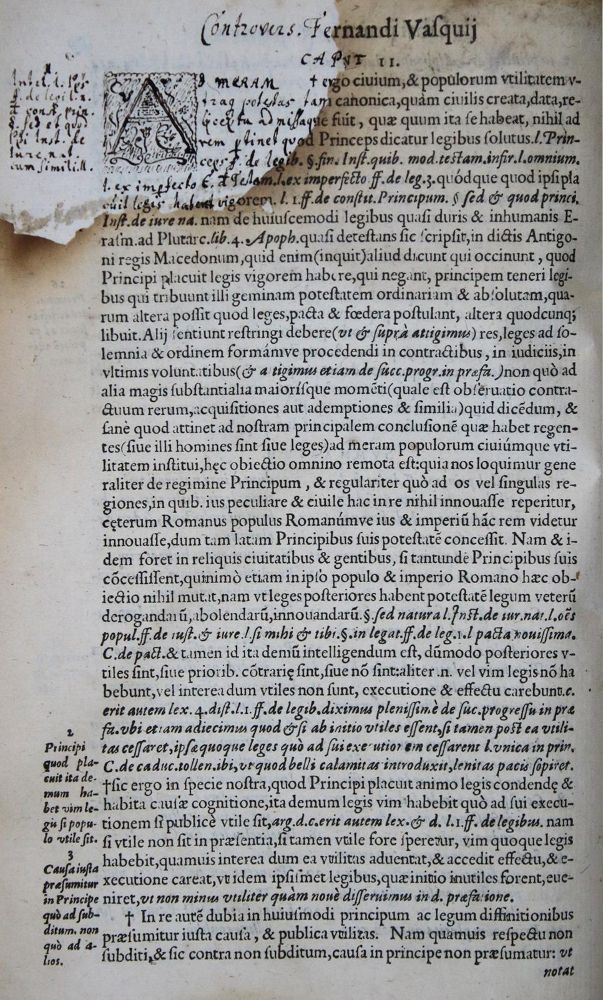 Controvers. Fernandi Vasquij
CAPVT II.
AD MERAM † ergo ciuium, & populorum vtilitatem v-
traq; potestas tam canonica, quàm ciuilis creata, data, re-
cepta admissaque fuit, quæ quum ita se habeat, nihil ad
rem pertinet quod Princeps dicatur legibus solutus. l. Prin-
ceps. ff. de legib. § fin. Inst. quib. mod. testam. infir. l. omnium.
l. ex imperfecto C. de testam. l. ex imperfecto ff. de leg. 3. quódque quod ipsi pla
habent vigorem. l. 1. ff. de constit. Principum. § sed & quod princi.
Inst. de iure na. nam de huiuscemodi legibus quasi duris & inhumanis E-
rasm. ad Plutarc. lib. 4. Apoph. quasi detestans sic scripsit, in dictis Antigo-
ni regis Macedonum, quid enim (inquit) aliud dicunt qui occinunt, quod
Principi placuit legis vigorem habere, qui negant, principem teneri legi-
bus qui tribuunt illi geminam potestatem ordinariam & absolutam, qua-
rum altera possit quod leges, pacta & fœdera postulant, altera quodcunq;
libuit. Alij sentiunt restringi debere (vt & suprà attigimus) res, leges ad so-
lemnia & ordinem formámve procedendi in contractibus, in iudiciis, in
vltimis voluntatibus (& a tigimus etiam de succ. progr. in præfa.) non quò ad
alia magis substantialia maiorísque mométi (quale est obseruatio contra-
ctuum rerum, acquisitiones aut ademptiones & similia) quid dicēdum, &
sanè quod attinet ad nostram principalem conclusionē quæ habet regen-
tes (siue illi homines sint siue leges) ad meram populorum ciuiúmque vti-
litatem institui, hęc obiectio omnino remota est: quia nos loquimur gene
raliter de regimine Principum, & regulariter quò ad os vel singulas re-
giones, in quib. ius peculiare & ciuile hac in re nihil innouasse reperitur,
cęterum Romanus populus Romanúmve ius & imperiū hāc rem videtur
innouasse, dum tam latam Principibus suis potestatē concessit. Nam & i-
dem foret in reliquis ciuitatibus & gentibus, si tantunde Principibus suis
cōcessissent, quinimò etiam in ipso populo & imperio Romano hæc ob-
iectio nihil mutat, nam vt leges posteriores habent potestatē legum veterū
derogandarū, abolendarū, innouandarū. § sed natural. Inst. de iur. nat. l. oēs
popul. ff. de iust. & iure. l. si mihi & tibi. §. in legat. ff. de leg. 1. l pacta nouissima.
C. de pact. & tamen id ita demū intelligendum est, dūmodo posteriores v-
tiles sint, siue priorib. cōtrarię sint, siue nō sint: aliter .n. vel vim legis nō ha
bebunt, vel interea dum vtiles non sunt, executione & effectu carebunt. c.
erit autem lex. 4. dist. l. 1. ff. de legib. diximus plenissimè de suc. progressu in præ
fa. vbi etiam adiecimus quod & si ab initio vtiles essent, si tamen post ea vtili-
tas cessaret, ipsæ quoque leges quò ad sui executionem cessarent l. vnica in prin.
C. de caduc. tollen. ibi, vt quod belli calamitas introduxit, lenitas pacis sopiret.
† sic ergo in specie nostra, quod Principi placuit animo legis condendę &
habita causæ cognitione, ita demum legis vim habebit quò ad sui execu-
tionem si publicè vtile sit, arg. d. c. erit autem lex. & d. l. 1. ff. de legibus. nam
si vtile non sit in præsentia, si tamen vtile fore speretur, vim quoque legis
habebit, quamuis interea dum ea vtilitas aduentat, & accedit effectu, & e-
xecutione careat, vt idem ipsismet legibus, quæ initio inutiles forent, eue-
niret, vt non minus vtiliter quàm nouè disseruimus in d. præfatione.
† In re autē dubia in huiusmodi principum ac legum diffinitionibus
præsumitur iusta causa, & publica vtilitas. Nam quamuis respectu non
subditi, & sic contra non subditum, causa in principe non præsumatur: vt
notat
2
Principi
quod pla-
cuit ita de-
mum ha-
bet vim le-
gis si popu-
lo vtile sit.
3
Causa iusta
præsumitur
in Principe
quò ad sub-
ditum. non
quò ad a-
lios.